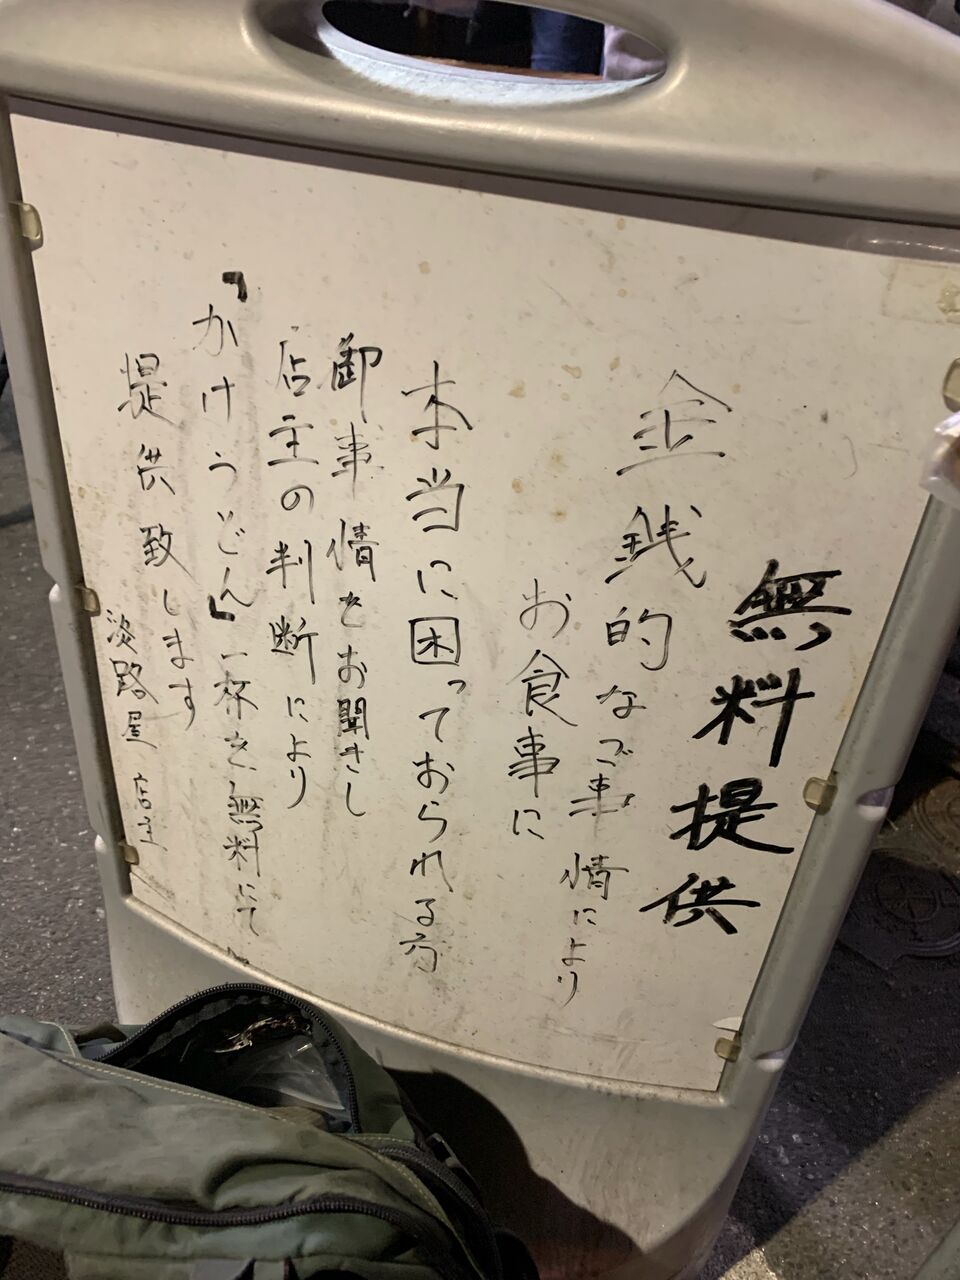 無料提供
金銭的なご事情により
お食事に
本当に困っておられる方
御事情をお聞きし
店主の判断により
「かけうどん」一杯を無料にて
提供致します
淡路屋 店主